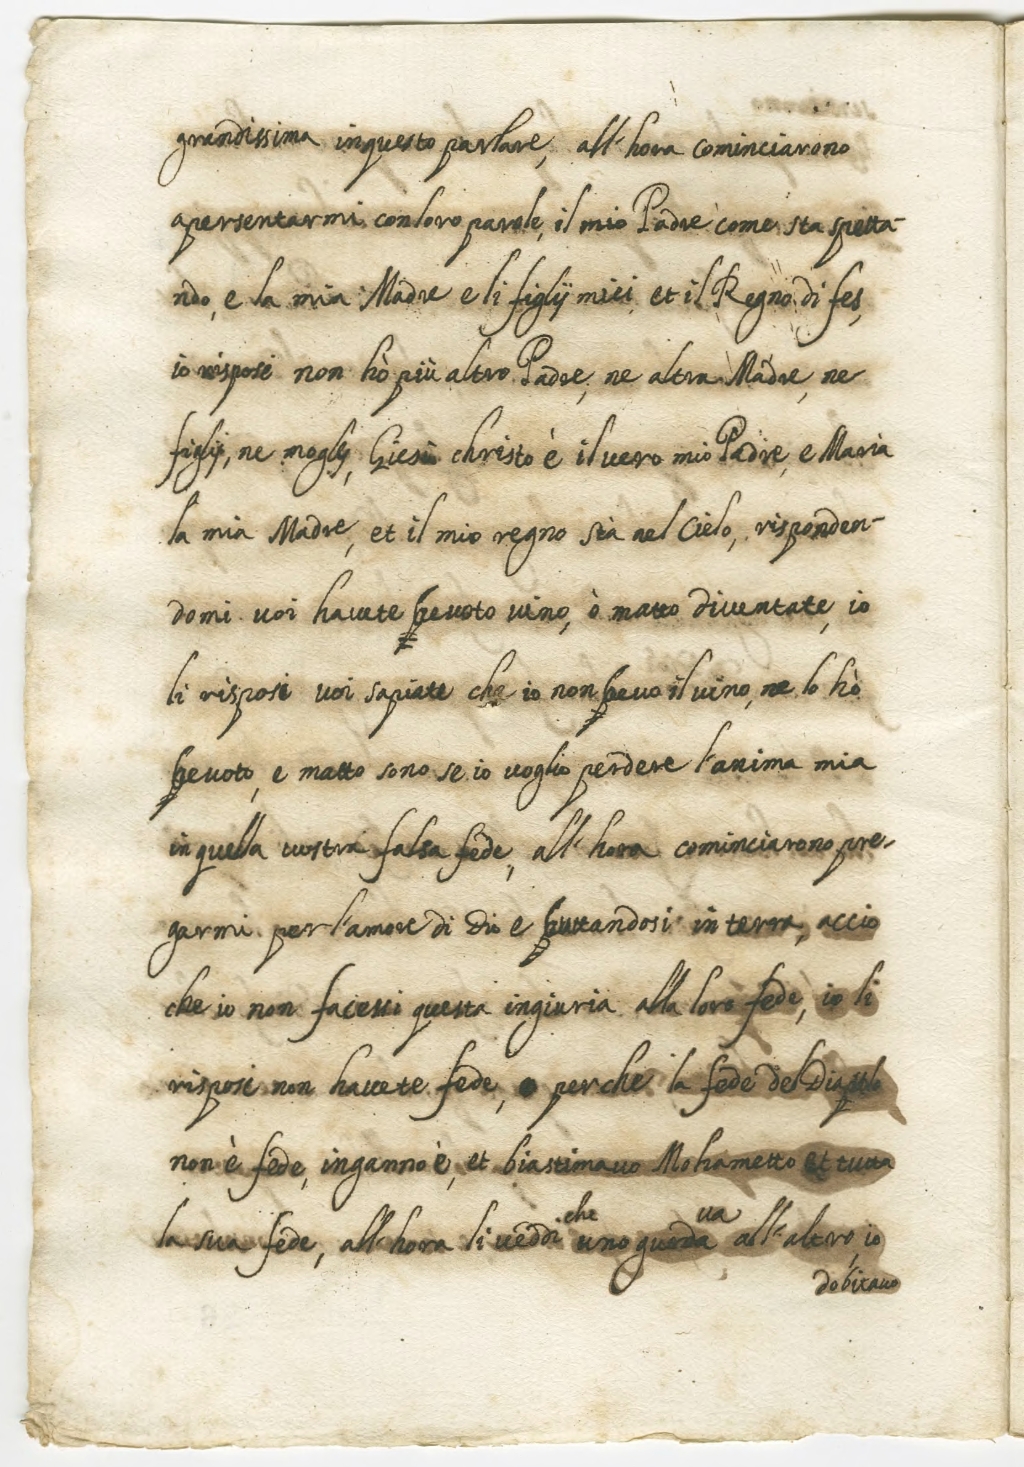 grandissima inquesto parlare, all'hora cominciarono
apersentarmi conloro parole, il mio Padre come sta spetta-
ndo, e la mia Madre e li figlij miei et il Regno di fes,
io risposi non hò più altro Padre, ne altra Madre, ne
figlij, ne moglj, Giesù christo è il vero mio Padre, e Maria
la mia Madre, et il mio regno stà nel Cielo, risponden-
domi voi havete bevoto vino, ò matto diventate, io
li risposi voi sapiate che io non bevo il vino, ne lo hò
bevoto, e matto sono se io voglio perdere l'anima mia
in quella vostra falsa fede, all'hora cominciarono pre-
garmi per l'amore di Dio e buttandosi in terra, accio
che io non facessi questa ingiuria alla loro fede, io li
risposi non havete fede, perche la fede del Diavolo
non è fede, inganno è, et biastimavo Mohametto et tutta
la sua fede, all'hora li veddi che uno guardava all'altro, io
dobitavo